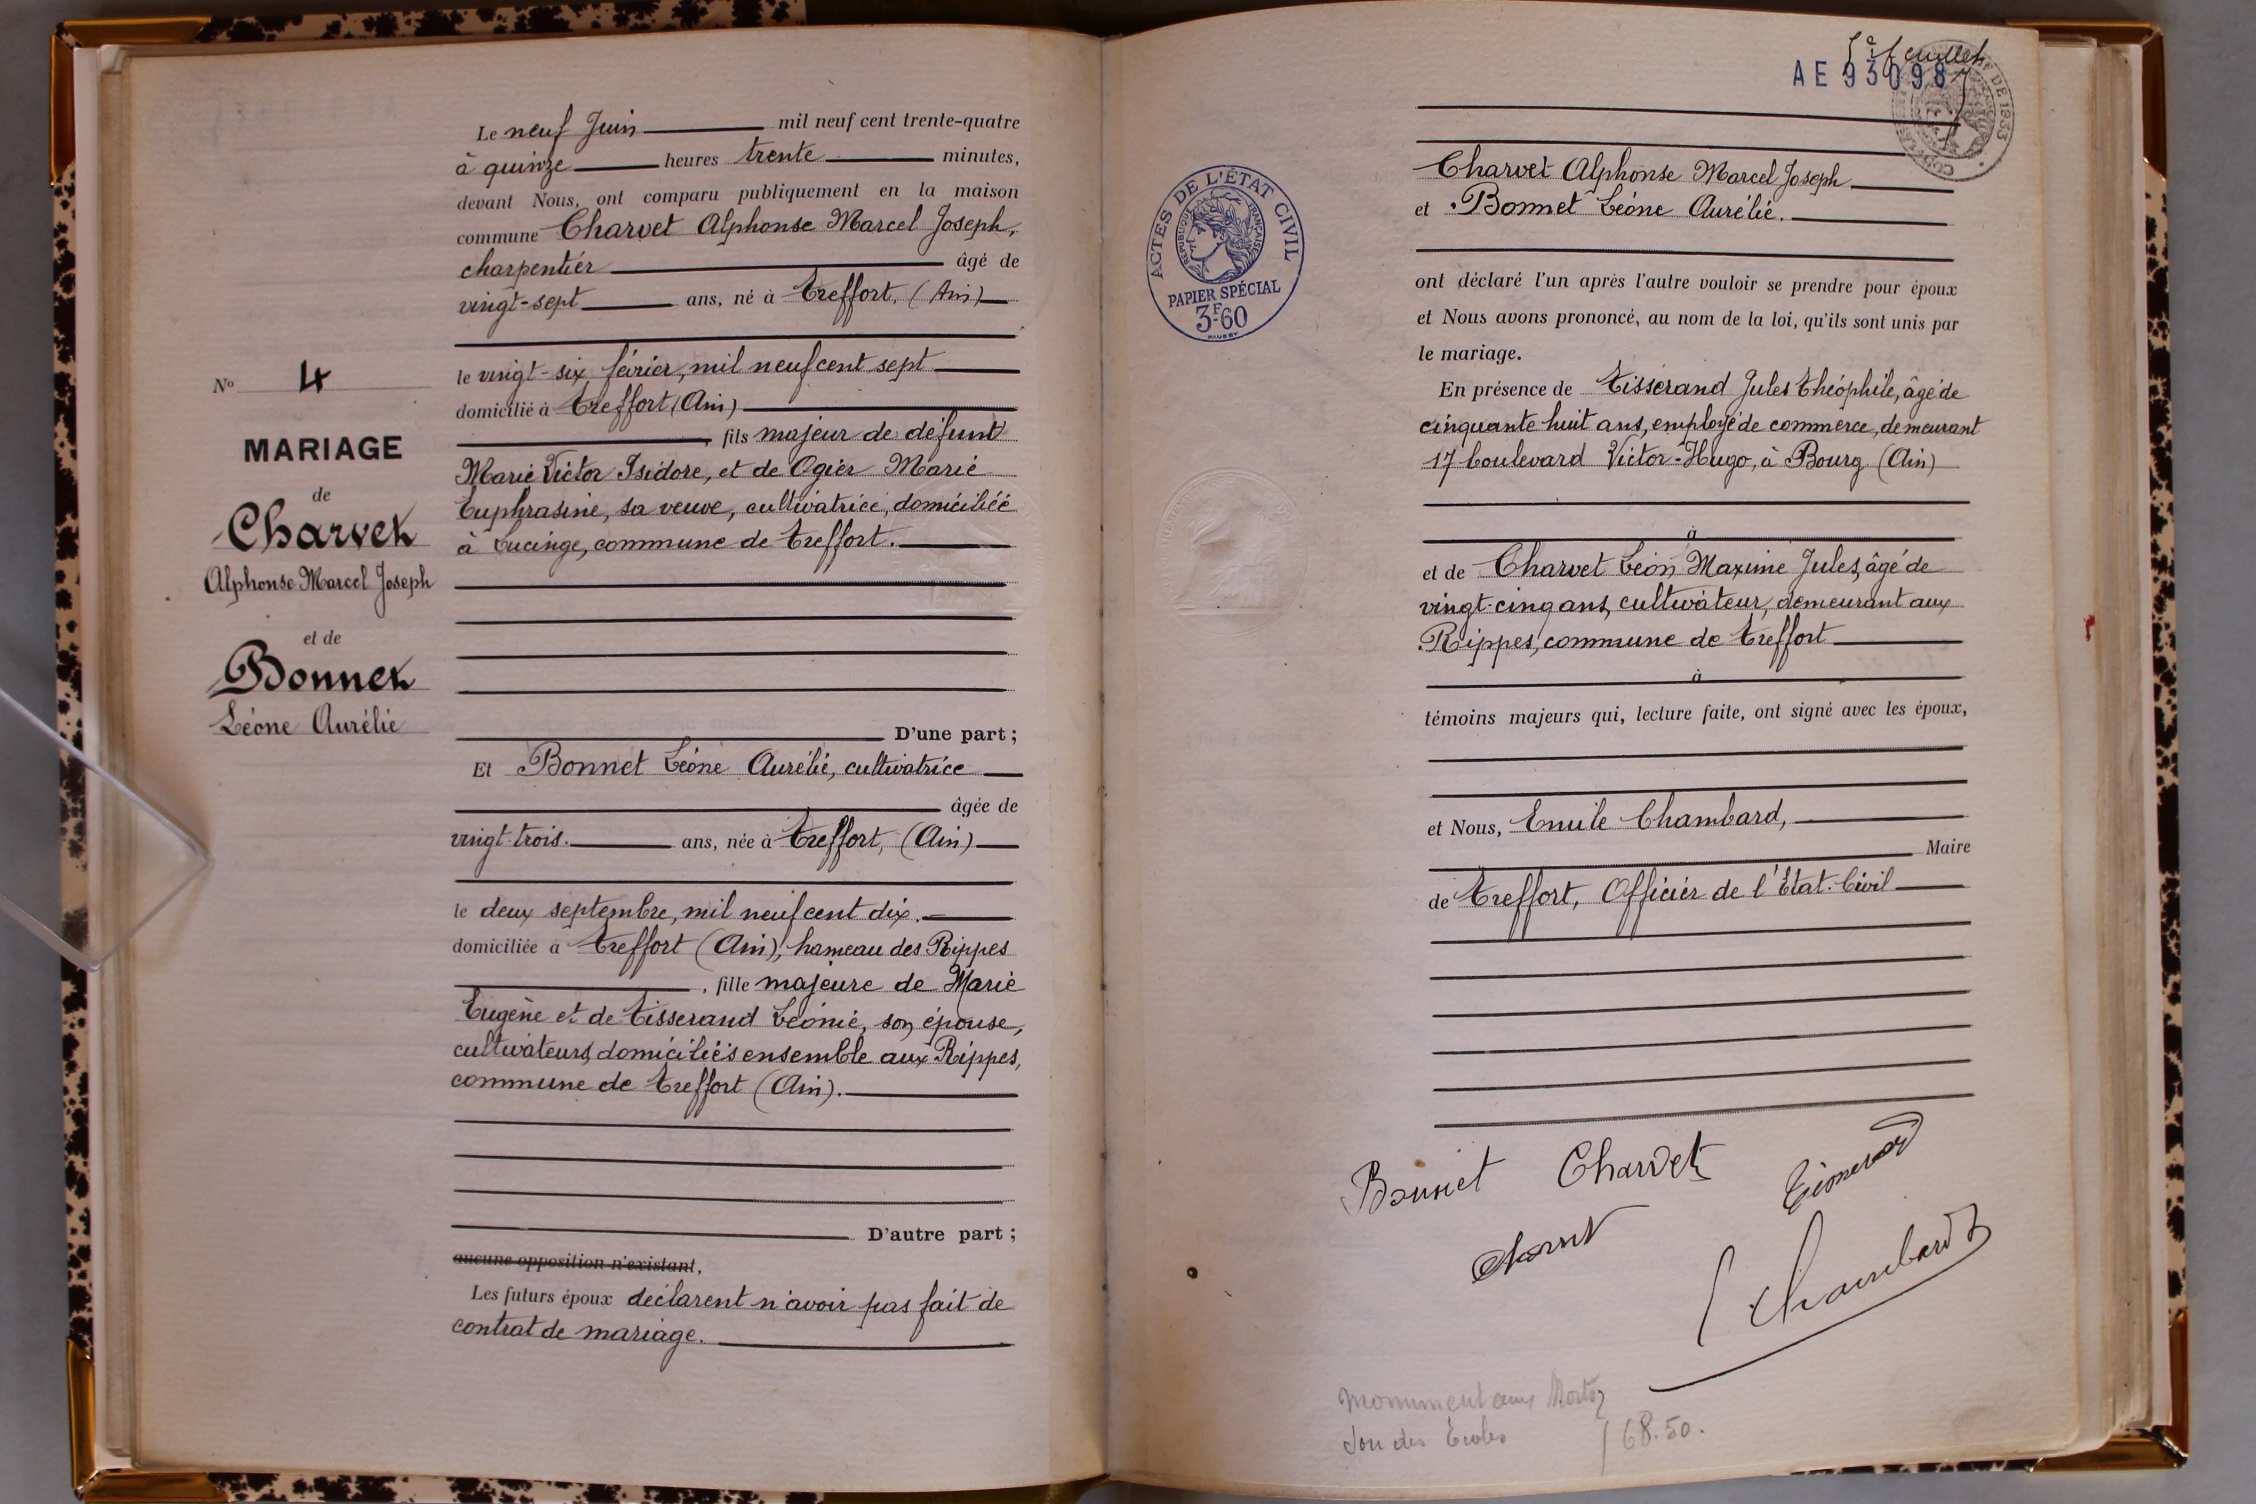 N° 4
MARIAGE
de
Charvet
Alphonse Marcel Joseph
et de
Bonnet
Léone Aurélie
Le neuf Juin mil neuf cent trente-quatre
à quinze heures trente minutes,
devant Nous, ont comparu publiquement en la maison
commune Charvet Alphonse Marcel Joseph,
charpentier âgé de
vingt-sept ans, né à Treffort, (Ain)
le vingt-six février, mil neuf cent sept
domicilié à Treffort (Ain)
, fils majeur de défunt
Marie Victor Isidore, et de Ogier Marie
Euphrasine, sa veuve, cultivatrice, domiciliée
à Lucinge, commune de Treffort.
D'une part ;
Et Bonnet Léone Aurélie, cultivatrice
âgée de
vingt-trois. ans, née à Treffort, (Ain)
le deux septembre, mil neuf cent dix.
domiciliée à Treffort (Ain), hameau des Rippes
, fille majeure de Marie
Eugène et de Tisserand Léonie, son épouse,
cultivateurs, domiciliés ensemble aux Rippes,
commune de Treffort (Ain).
D'autre part ;
aucune opposition n'existant,
Les futurs époux déclarent n'avoir pas fait de
contrat de mariage.
5e feuillet
AE 93098
ACTES DE L'ÉTAT CIVIL
RÉPUBLIQUE FRANÇAISE
PAPIER SPÉCIAL
3F60
Charvet Alphonse Marcel Joseph
et Bonnet Léone Aurélie.
ont déclaré l'un après l'autre vouloir se prendre pour époux
et Nous avons prononcé, au nom de la loi, qu'ils sont unis par
le mariage.
En présence de Tisserand Jules Théophile, âgé de
cinquante-huit ans, employé de commerce, demeurant
17 boulevard Victor-Hugo, à Bourg (Ain)
à
et de Charvet Léon Maxime Jules, âgé de
vingt-cinq ans, cultivateur, demeurant aux
Rippes, commune de Treffort
à
témoins majeurs qui, lecture faite, ont signé avec les époux,
et Nous, Emile Chambard,
Maire
de Treffort, Officier de l'Etat-Civil
Bonnet Charvet Tisserand
Charvet
E Chambard
Monument aux Morts
Sou des Ecoles 68.50.